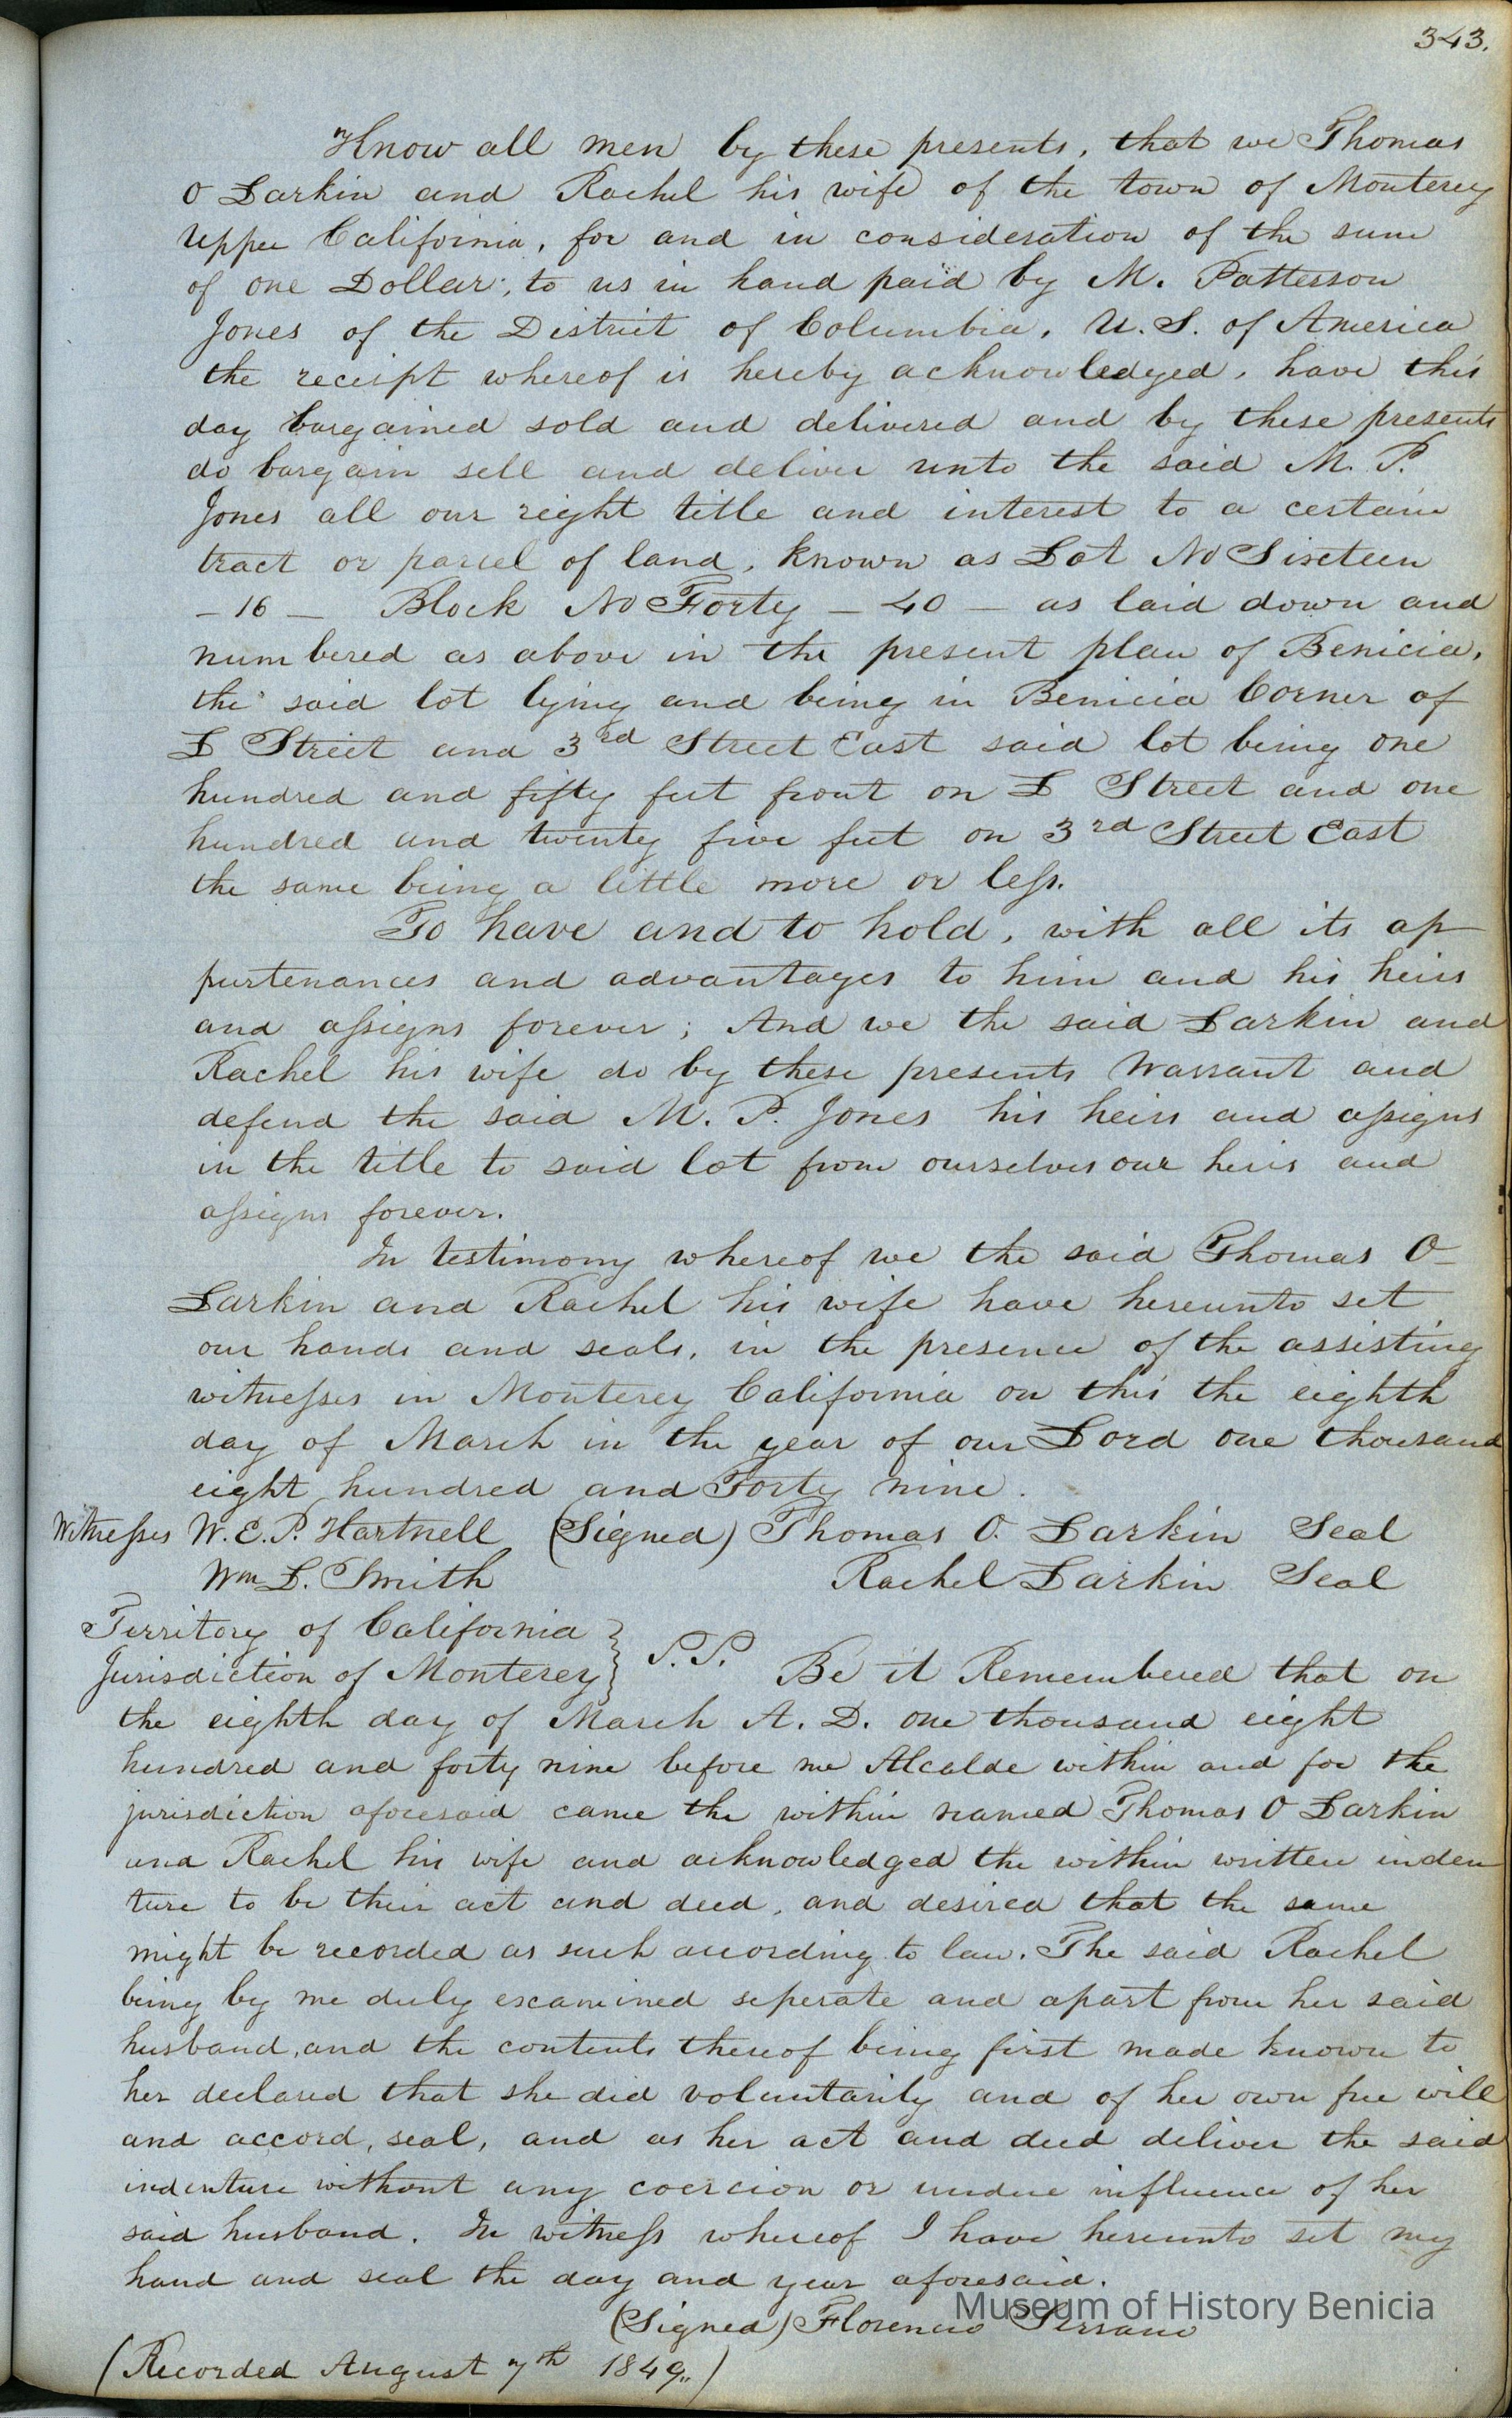 343.
Know all men by these presents, that we Thomas
O Larkin and Rachel his wife of the town of Monterey
Upper California, for and in consideration of the sum
of one Dollar, to us in hand paid by M. Patterson
Jones of the District of Columbia, U.S. of America
the receipt whereof is hereby acknowledged, have this
day bargained sold and delivered and by these presents
do bargain sell and deliver unto the said M. P.
Jones all our right title and interest to a certain
tract or parcel of land, known as Lot No Sixteen
- 16 - Block No Forty - 40 - as laid down and
numbered as above in the present plan of Benicia,
the said lot lying and being in Benicia Corner of
L Street and 3rd Street East said lot being one
hundred and fifty feet front on L Street and one
hundred and twenty five feet on 3rd Street East
the same being a little more or less.
To have and to hold, with all its ap
purtenances and advantages to him and his heirs
and assigns forever; And we the said Larkin and
Rachel his wife do by these presents Warrant and
defend the said M. P. Jones his heirs and assigns
in the title to said lot from ourselves our heirs and
assigns forever.
In testimony whereof we the said Thomas O
Larkin and Rachel his wife have hereunto set
our hands and seals, in the presence of the assisting
witnesses in Monterey California on this the eighth
day of March in the year of our Lord one thousand
eight hundred and Forty nine.
Witnesses W. E. P. Hartnell (Signed) Thomas O. Larkin Seal
Wm L. Smith Rachel Larkin Seal
Territory of California }
Jurisdiction of Monterey } S.S. Be it Remembered that on
the eighth day of March A. D. one thousand eight
hundred and forty nine before me Alcalde within and for the
jurisdiction aforesaid came the within named Thomas O Larkin
and Rachel his wife and acknowledged the within written inden
ture to be their act and deed, and desired that the same
might be recorded as such according to law. The said Rachel
being by me duly examined seperate and apart from her said
husband, and the contents thereof being first made known to
her declared that she did voluntarily and of her own free will
and accord, seal, and as her act and deed deliver the said
indenture without any coercion or undue influence of her
said husband. In witness whereof I have hereunto set my
hand and seal the day and year aforesaid.
Museum of History Benicia
(Signed) Florencio Serrano
(Recorded August 7th 1849,,)